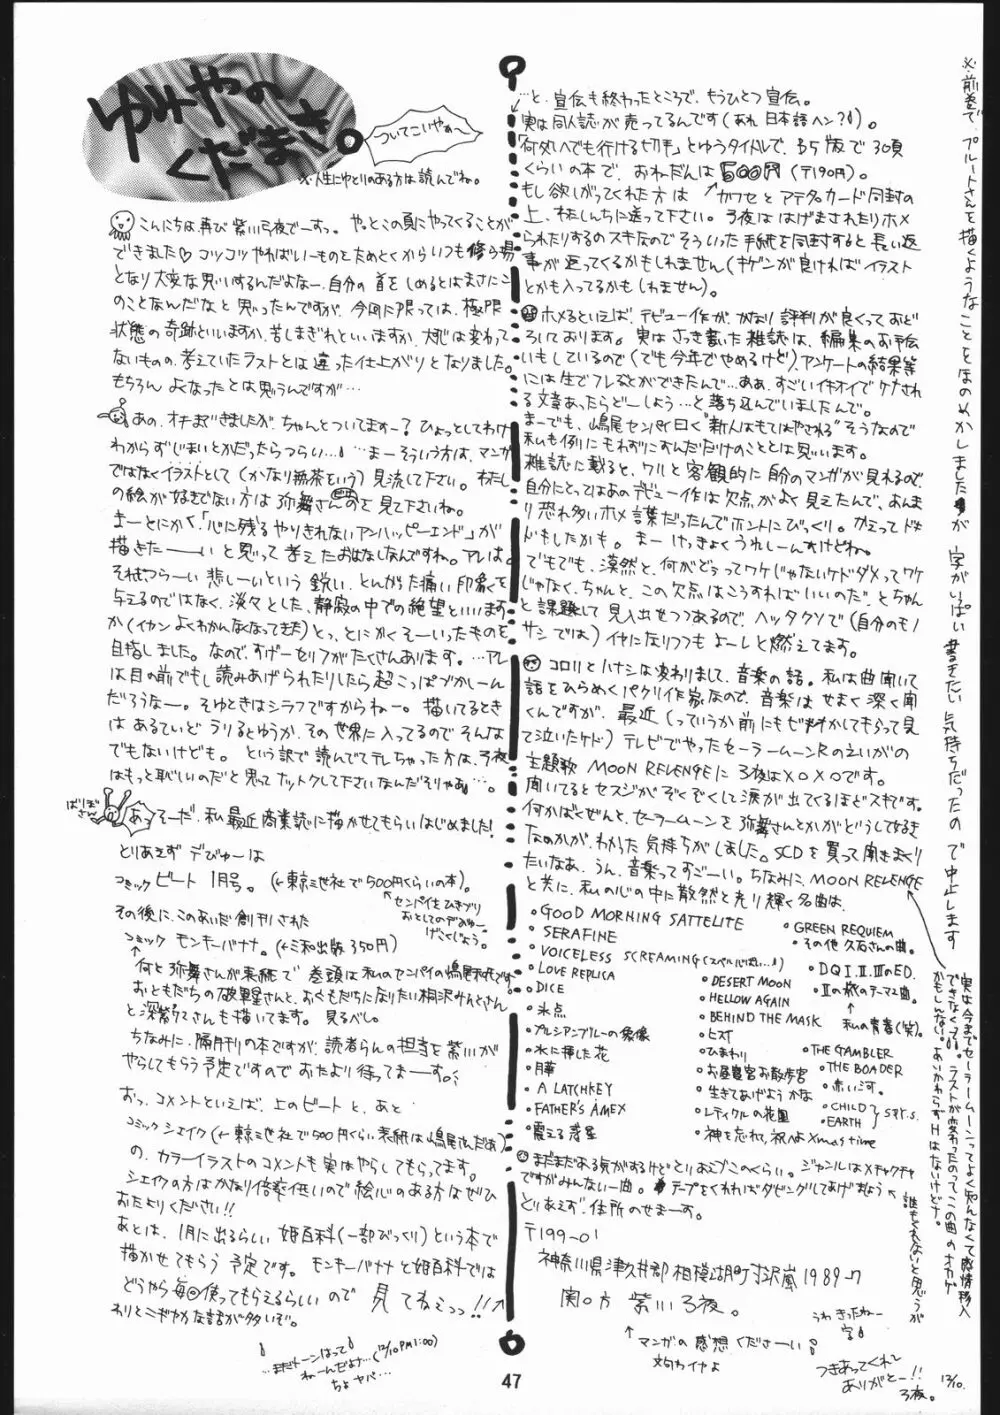 ゆみやの
くだまき。
ついてこいやぁ〜
※人生にゆとりのある方は読んでね。
こんにちは再び紫川弓夜でーすっ。やっとこの頁にやってくることが
できました♡コツコツやればいーものをためとくからいつも修ら場
となり大変な思いするんだよなー、自分の首をしめるとはまさにこ
のことなんだなと思ったんですが、今回に限っては、極限
状態の奇跡といいますか、苦しまぎれといいますか、大すじは変わって
ないものの、考えていたラストとは違った仕上がりとなりました。
もちろんよくなったとは思うんですが…
あの、オチまできましたが、ちゃんとついてますー?ひょっとしてわけ
わからずじまいとかだったらつらい…! …まーそういう方は、マンガ
ではなくイラストとして(かなり無茶という)見流して下さい。わたし
の絵が好きでない方は弥舞さんのを見て下さいね。
まーとにかく「心に残るやりきれないアンハッピーエンド」が
描きたーーいと思って考えたおはなしなんですね。アレは。
それもつらーい悲しーいという鋭い、とんがった痛い印象を
与えるのではなく、淡々とした、静寂の中での絶望といいます
か(イカンよくわかんなくなってきた)とっ、とにかくそーいったものを
目指しました。なので、すげーセリフがたくさんあります。…アレ
は目の前でもし読みあげられたりしたら超こっぱずかしーん
だろうなー。そゆときはシラフですからねー。描いてるとき
はあるていどうりるとゆうか、その世界に入ってるのでそんな
でもないけども。という訳で読んでてテレちゃった方は、弓夜
はもっと恥しいのだと思ってナットクして下さいなんだそりゃあ…。
ばりぼりさん
あっそーだ、私最近商業誌に描かせてもらいはじめました!
とりあえずデびゅーは
コミックビート 1月号。(←東京三世社で500円くらいの本)。
その後に、このあいだ創刊された
コミック モンキーバナナ。(←三和出版350円)
何と弥舞さんが表紙で 巻頭は私のセンパイの嶋尾和さんです。
おともだちの破軍星さんと、おともだちになりたい桐沢みんとさん
と深紫ウスさんも描いてます。見るべし。
ちなみに、隔月刊の本ですが、読者らんの担当を紫川が
やらしてもらう予定ですのでおたより待ってまーす。
おっ、コメントといえば、上のビートと、あと
コミックシェイク(←東京三世社で500円くらい表紙は嶋尾さんだあ)
の、カラーイラストのコメントも実はやらしてもらってます。
シェイクの方はかなり倍率低いので絵心のある方はぜひ
おたよりください!!
あとは、1月に出るらしい 姫百科(一部びっくり)という本で
描かせてもらう予定です。モンキーバナナと姫百科では
どうやら毎回使ってもらえるらしいので 見てねえっっ!!
わりとニギやかな話が多いぞ。
…まだトーンはって
ねーんだよナ…(12/10PM1:00)
ちょヤバ…
…と、宣伝も終わったところで、もうひとつ宣伝。
実は同人誌が売ってるんです(あれ 日本語ヘン?)。
「何処へでも行ける切手」とゆうタイトルで、B5版で30頁
くらいの本で、おねだんは500円(〒190円)。
もし欲しがってくれた方は カワセとアテ名カード同封の
上、わたしんちに送って下さい。弓夜ははげまされたりホメ
られたりするのスキなのでそういった手紙を同封すると長い返
事が返ってくるかもしれません(キゲンが良ければイラスト
とかも入ってるかもしれません)。
ホメるといえば、デビュー作が、かなり評判が良くっておど
ろいております。実はさっき書いた雑誌は、編集のお手伝
いもしているので(でも今年でやめるけど)、アンケートの結果等
には生でフレることができたんで…ああ、すごいイキオイでケナされ
る文章あったらどーしよう…と落ち込んでいましたんで。
まーでも、嶋尾センパイ曰く“新人はもてはやされる”そうなので
私も例にもれずにすんだだけのこととは思います。
雑誌に載ると、ワリと客観的に自分のマンガが見れるので、
自分にとってはあのデビュー作は欠点がよく見えたんで、あんま
り恐れ多いホメ言葉だったんでホントにびっくり。かえってドキ
ドもしたかも。まーけっきょくうれしーんすけどね。
でもでも、漠然と、何がどうってワケじゃないケドダメってワケ
じゃなく、ちゃんと、この欠点はこうすればいいのだ、とちゃん
と課題として見入出せつつあるので、ヘッタクソで(自分のモノ
サシでは)イヤになりつつもよーしと燃えてます。
コロリとハナシは変わりまして、音楽の話。私は曲聞いて
話をひらめくパクリ作家なので、音楽はせまく深く聞
くんですが、最近(っていうか前にもビデオかしてもらって見
て泣いたケド)テレビでやったセーラームーンRのえいがの
主題歌 MOON REVENGEに弓夜はXOXOです。
聞いてるとセスジがぞくぞくして涙が出てくるほどスキです。
何かばくぜんと、セーラームーンを弥舞さんとかがどうして好き
なのかが、わかった気持ちがしました。SCDを買って聞きまくり
たいなあ、うん、音楽ってすごーい。ちなみに、MOON REVENGE
と共に、私の心の中に散然と光り輝く名曲は、
•GOOD MORNING SATTELITE
•SERAFINE
•VOICELESS SCREAMING(スペル心ぱい…!)
•LOVE REPLICA
•DICE
•氷点
•プルシアンブルーの肖像
•水に挿した花
•月華
•A LATCHKEY
•FATHER'S AMEX
•震える惑星
•DESERT MOON
•HELLOW AGAIN
•BEHIND THE MASK
•ヒズイ
•ひまわり
•お昼寝宮お散歩宮
•生きてあげようかな
•レティクルの花園
•神を忘れて、祝へよXmas time
•GREEN REQUIEM
•その他 久石さんの曲。
•DQⅠ.Ⅱ.ⅢのED.
•Ⅱの旅のテーマ2曲。
私の青春(笑)。
•THE GAMBLER
•THE BOADER
•赤い河。
•CHILD
•EARTH
まだまだある気がするけどとりあえずこのくらい。ジャンルはメチャクチャ
ですがみんないー曲。テープをくれればダビングしてあげましょう
誰もくれないと思うが
とりあえず、住所のせまーす。
〒199-01
神奈川県津久井郡相模湖町寸沢嵐1989-7
関口方 紫川弓夜。
マンガの感想くださーい!
文句わイヤよ
うわきったねー
字!
つきあってくれて
ありがとー!!
弓夜。
12/10.
※前巻で、プルートさんを描くようなことをほのめかしましたが 字がいっぱい書きたい気持ちだったので中止します
実は今までセーラームーンってよく知んなくて感情移入
できなくって。ラストが変わったのってこの曲のオカゲ
かもしんない。あいかわらずHはないけどナ。
47